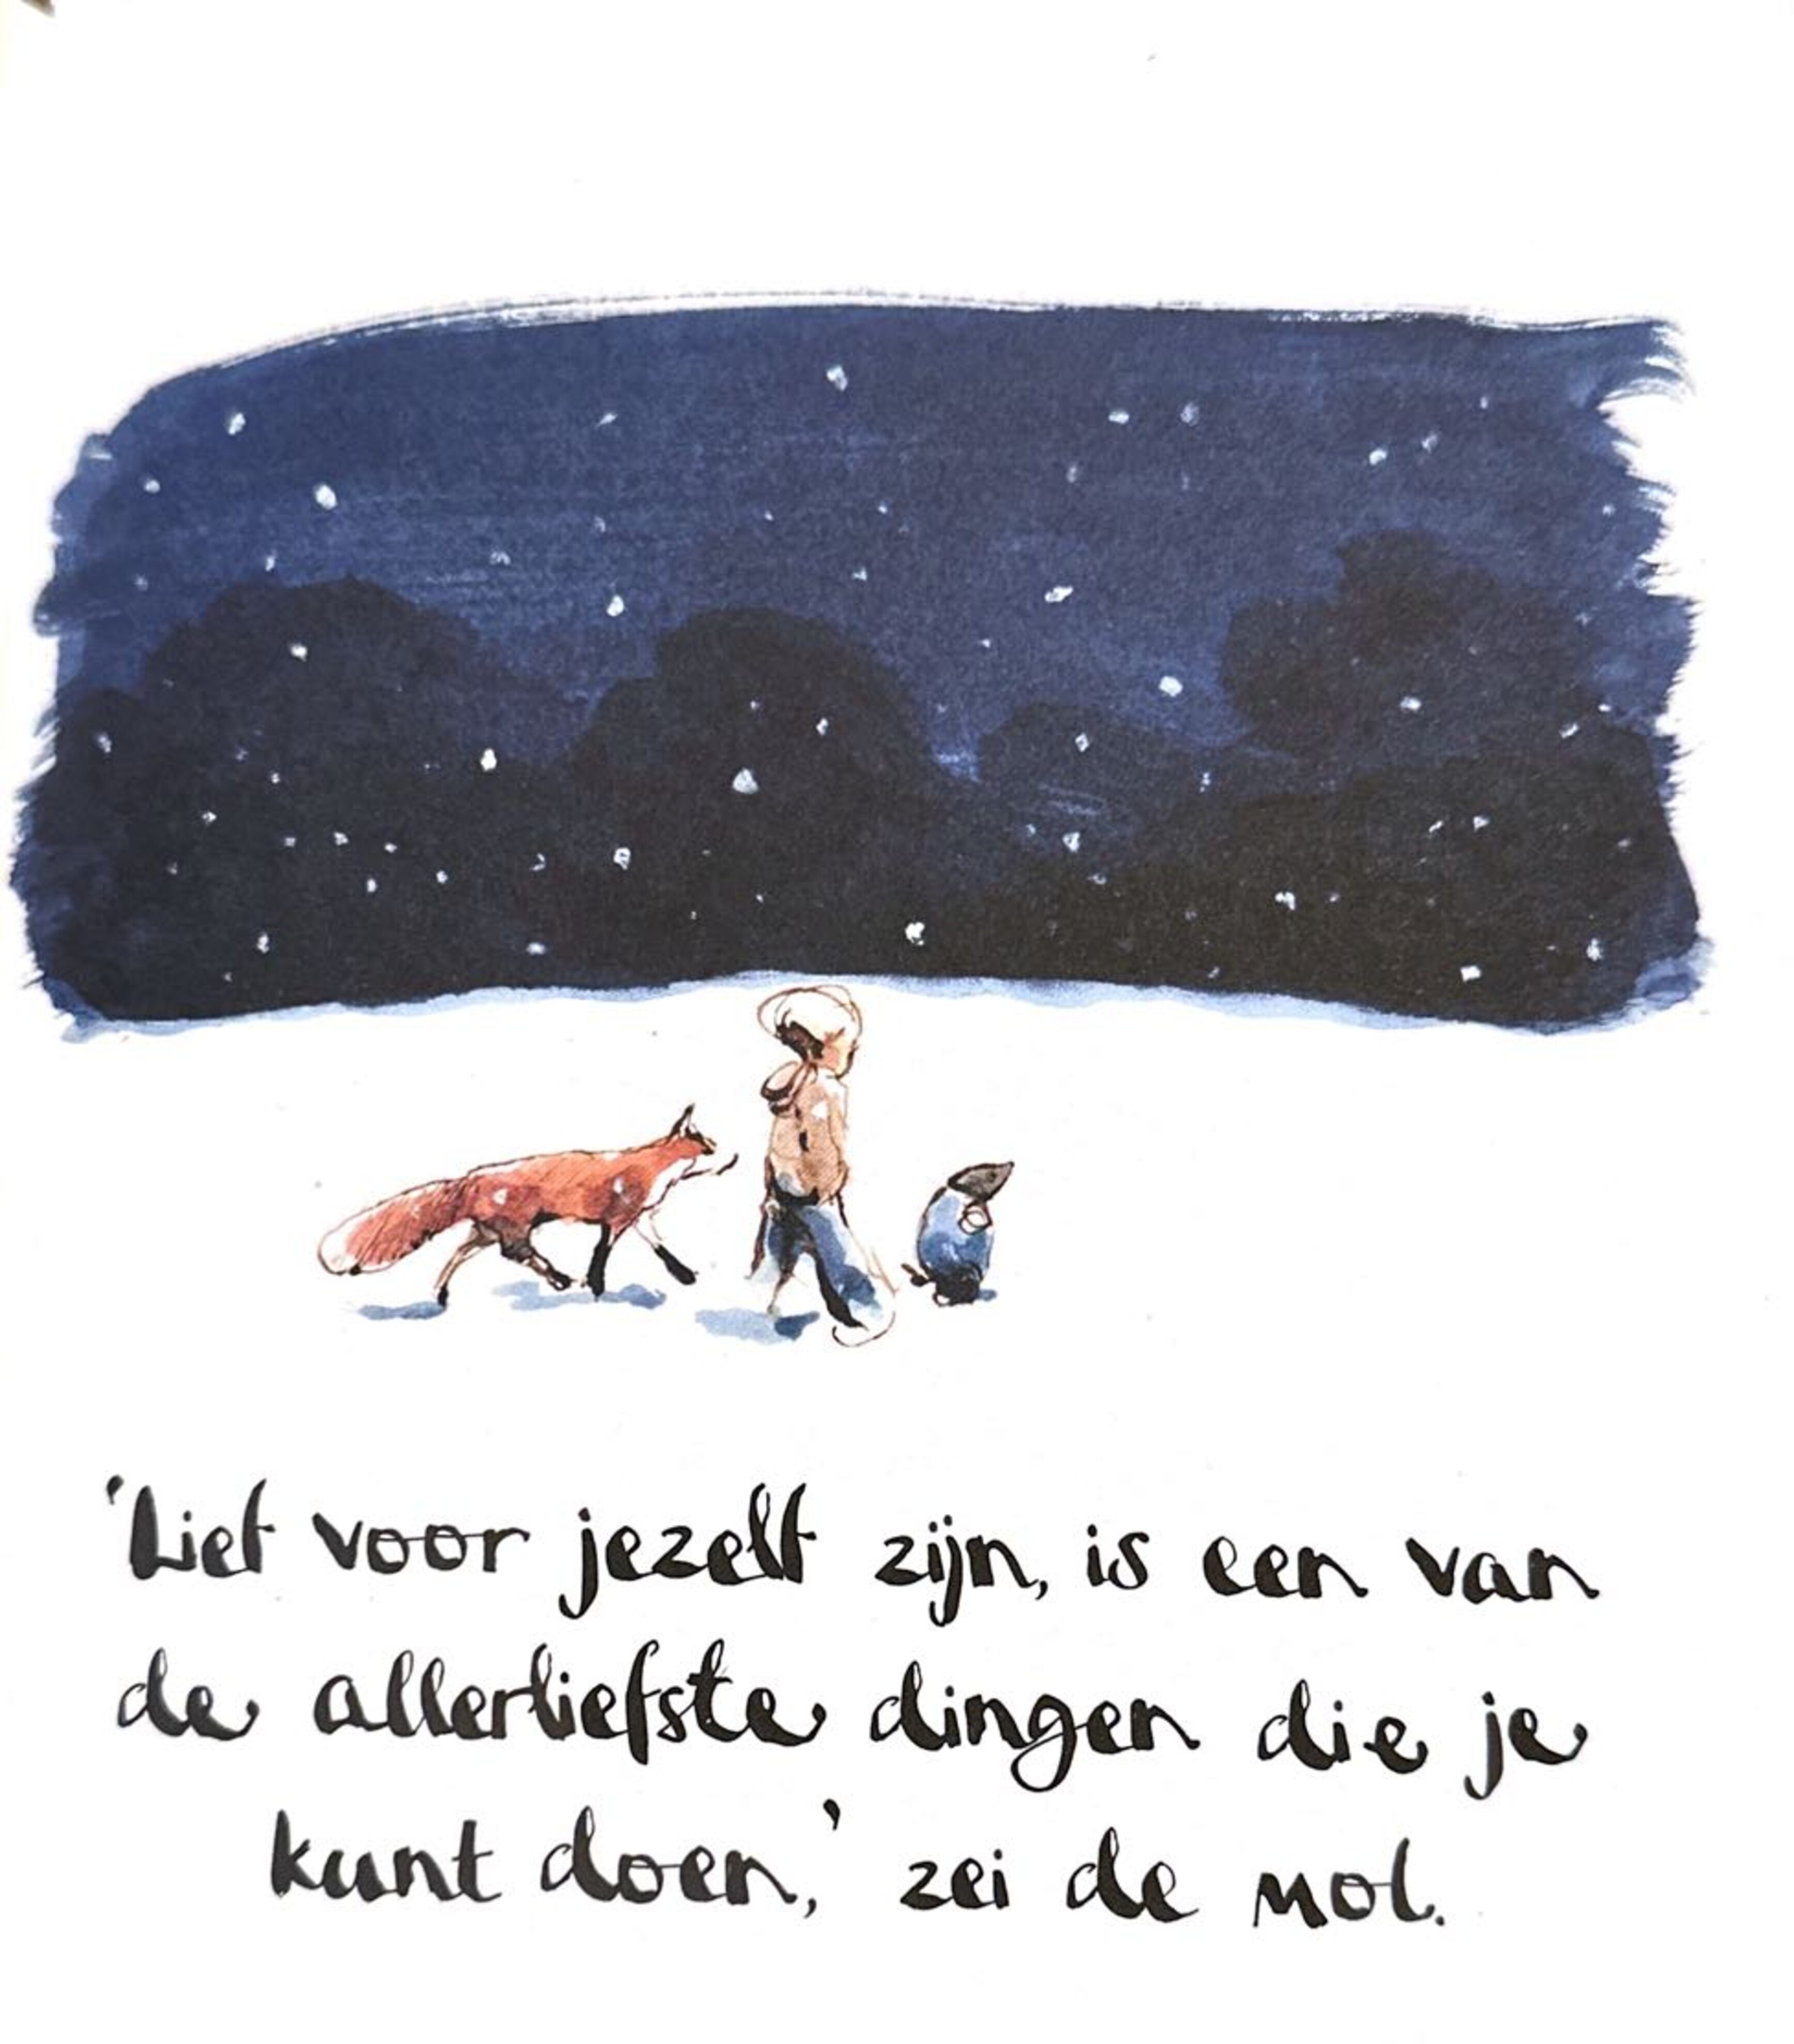 'Lief voor jezelf zijn, is een van
de allerliefste dingen die je
kunt doen,' zei de mol.